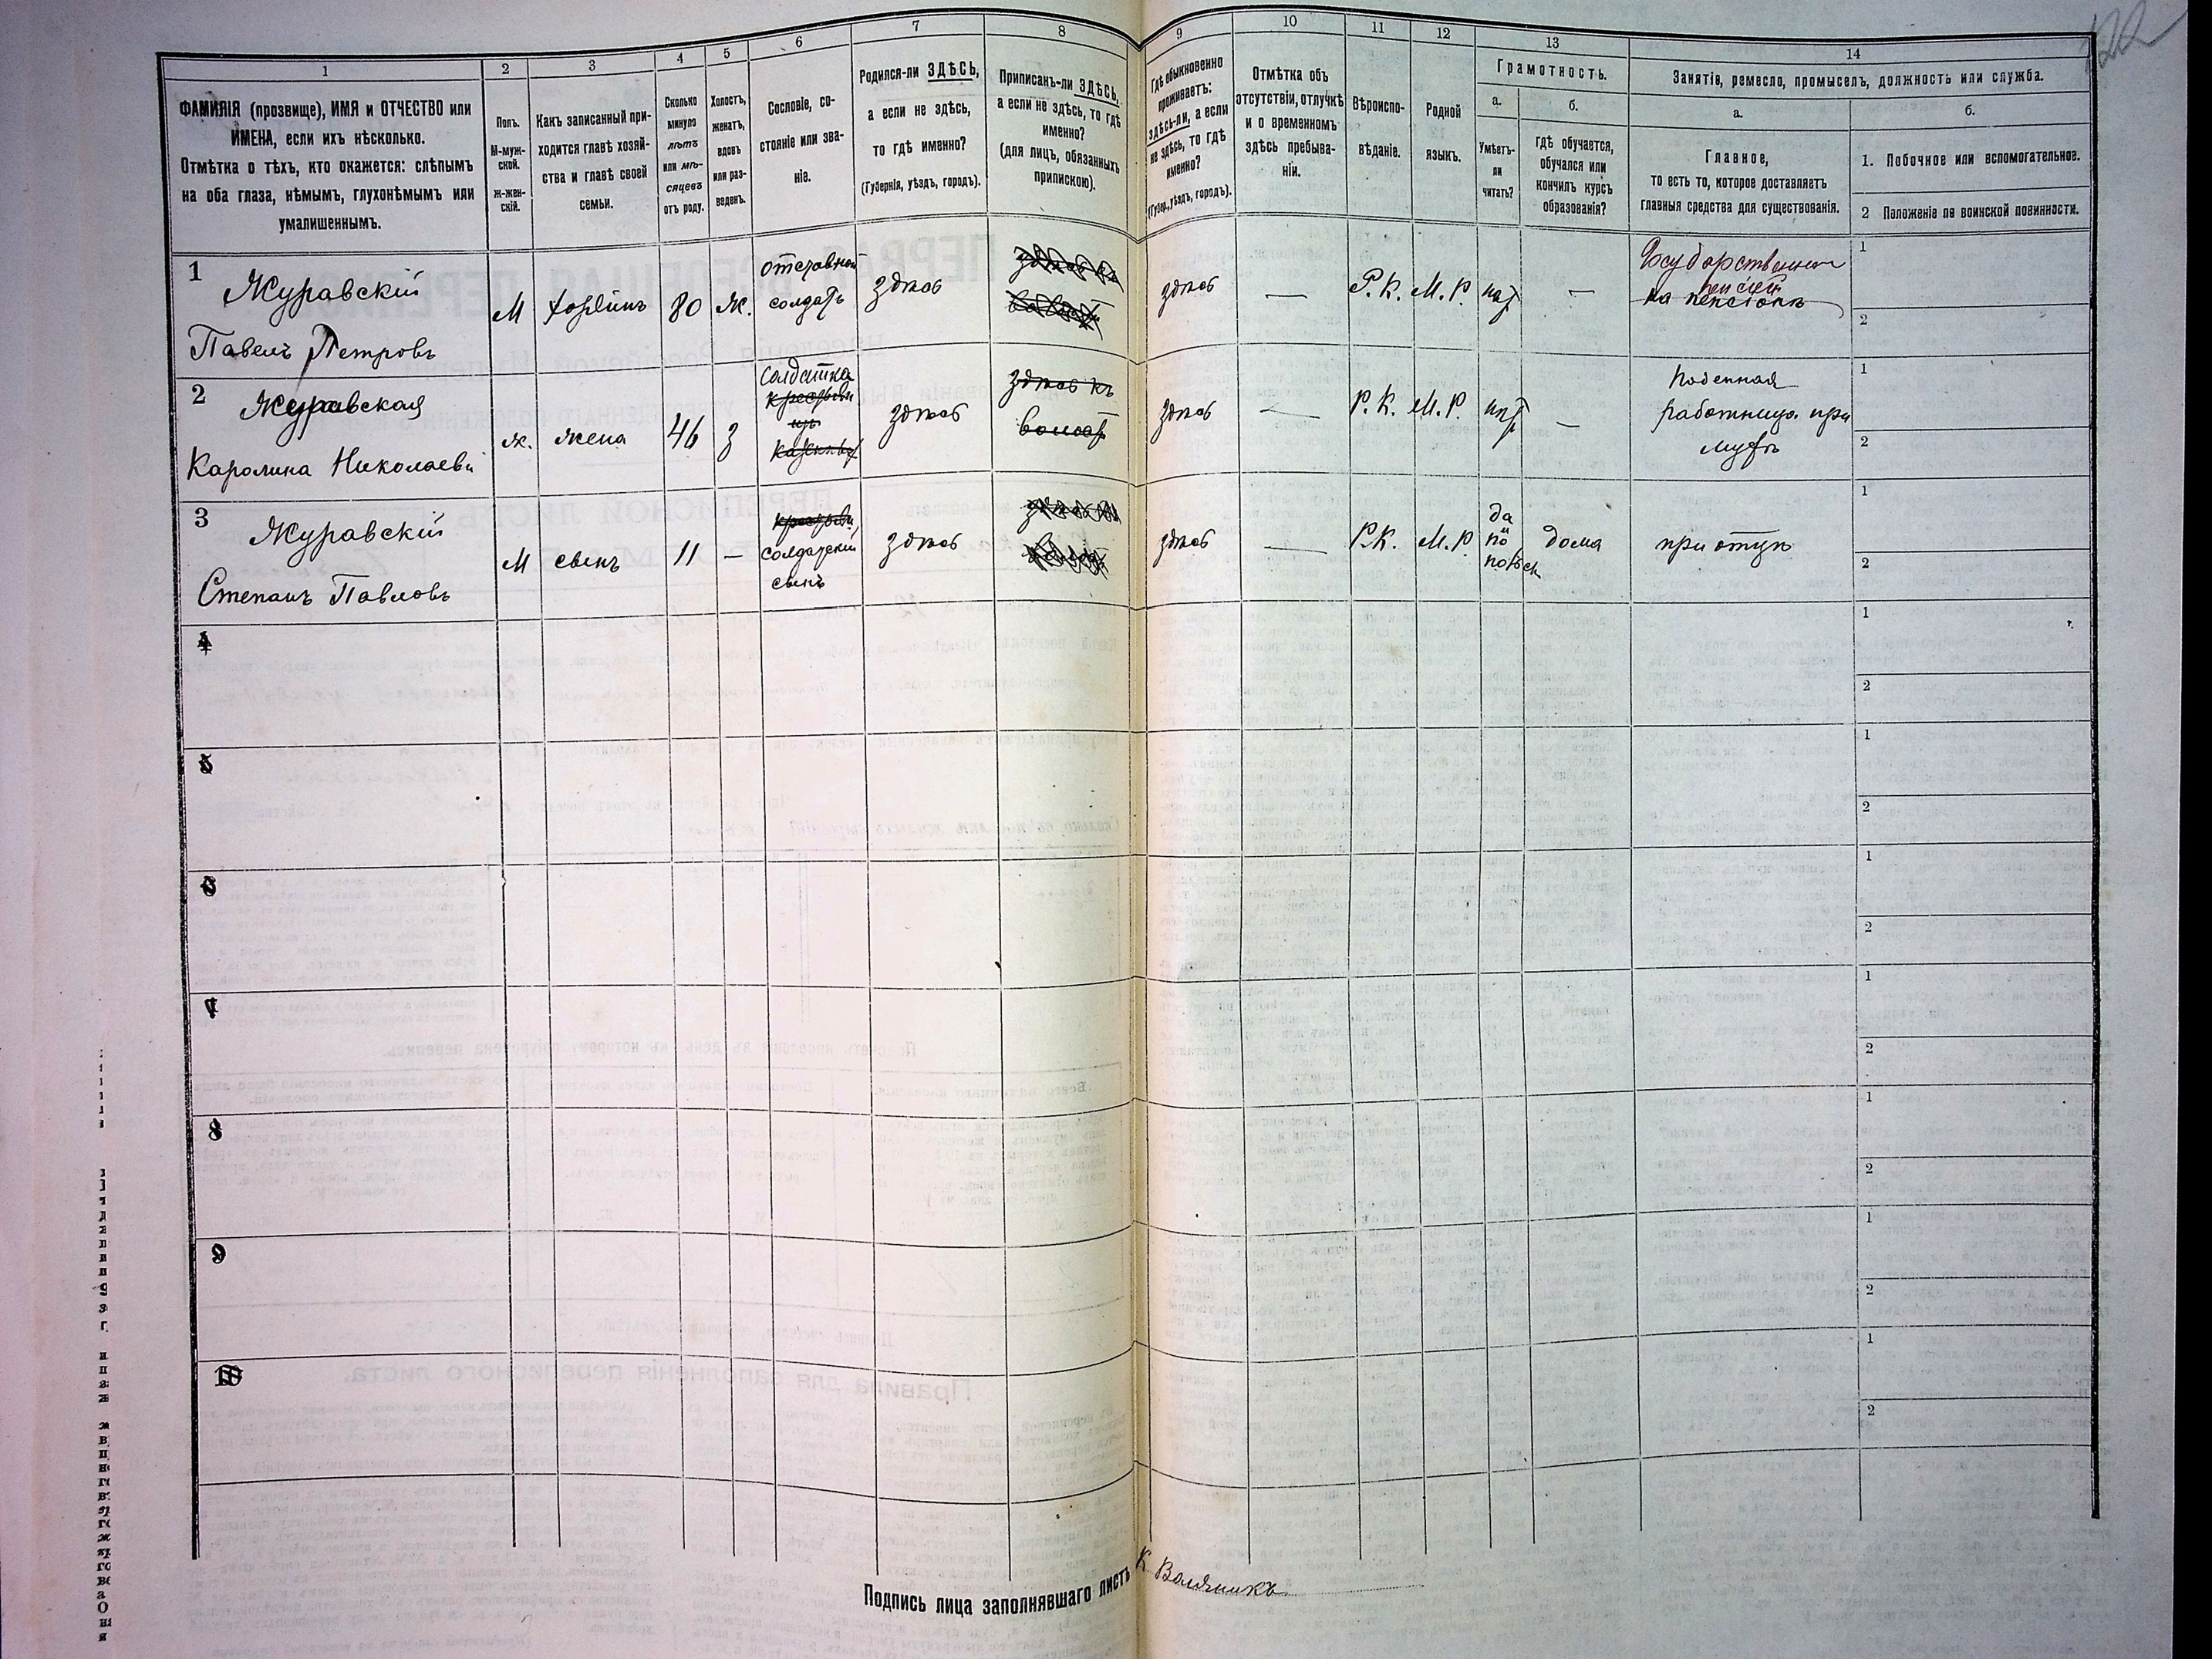 122
1
2
3
4
5
6
7
8
9
10
11
12
13
14
ФАМИЛІЯ (прозвище), ИМЯ и ОТЧЕСТВО или
ИМЕНА, если ихъ нѣсколько.
Отмѣтка о тѣхъ, кто окажется: слѣпымъ
на оба глаза, нѣмымъ, глухонѣмымъ или
умалишеннымъ.
Полъ.
М-муж-
ской.
ж-жен-
скій.
Какъ записанный при-
ходится главѣ хозяй-
ства и главѣ своей
семьи.
Сколько
минуло
лѣтъ
или мѣ-
сяцевъ
отъ роду.
Холостъ,
женатъ,
вдовъ
или раз-
веденъ.
Сословіе, со-
стояніе или зва-
ніе.
Родился-ли ЗДѢСЬ,
а если не здѣсь,
то гдѣ именно?
(Губернія, уѣздъ, городъ).
Приписанъ-ли ЗДѢСЬ,
а если не здѣсь, то гдѣ
именно?
(для лицъ, обязанныхъ
припискою).
Гдѣ обыкновенно
проживаетъ:
здѣсь-ли, а если
не здѣсь, то гдѣ
именно?
(Губер., уѣздъ, городъ).
Отмѣтка объ
отсутствіи, отлучкѣ
и о временномъ
здѣсь пребыва-
ніи.
Вѣроиспо-
вѣданіе.
Родной
языкъ.
Грамотность.
а.
Умѣетъ-
ли
читать?
б.
гдѣ обучается,
обучался или
кончилъ курсъ
образованія?
Занятіе, ремесло, промыселъ, должность или служба.
а.
Главное,
то есть то, которое доставляетъ
главныя средства для существованія.
б.
1. Побочное или вспомогательное.
2 Положеніе по воинской повинности.
1
Журавскій
Павелъ Петровъ
М
хозяинъ
80
ж.
отставной
солдатъ
здѣсь
здѣсь
Р.К.
М.Р.
нѣт
—
на пенсіонѣ
1
2
2
Журавская
Каролина Николаевн
ж.
жена
46
з
солдатка
крестьян
изъ
казенных
здѣсь
здѣсь къ
волост
здѣсь
Р.К.
М.Р.
нѣт
—
Поденная
работница при
мужѣ
1
2
3
Журавскій
Степанъ Павловъ
М
сынъ
11
—
солдатскій
сынъ
здѣсь
здѣсь
Р.К.
М.Р.
да
и
по
польск
дома
при отцѣ
1
2
4
1
2
5
1
2
6
1
2
7
1
2
8
1
2
9
1
2
10
1
2
Подпись лица заполнявшаго листъ